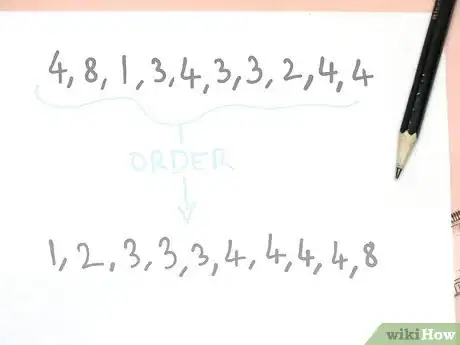 4, 8, 1, 3, 4, 3, 3, 2, 4, 4
ORDER
1, 2, 3, 3, 3, 4, 4, 4, 4, 8
wikiHow